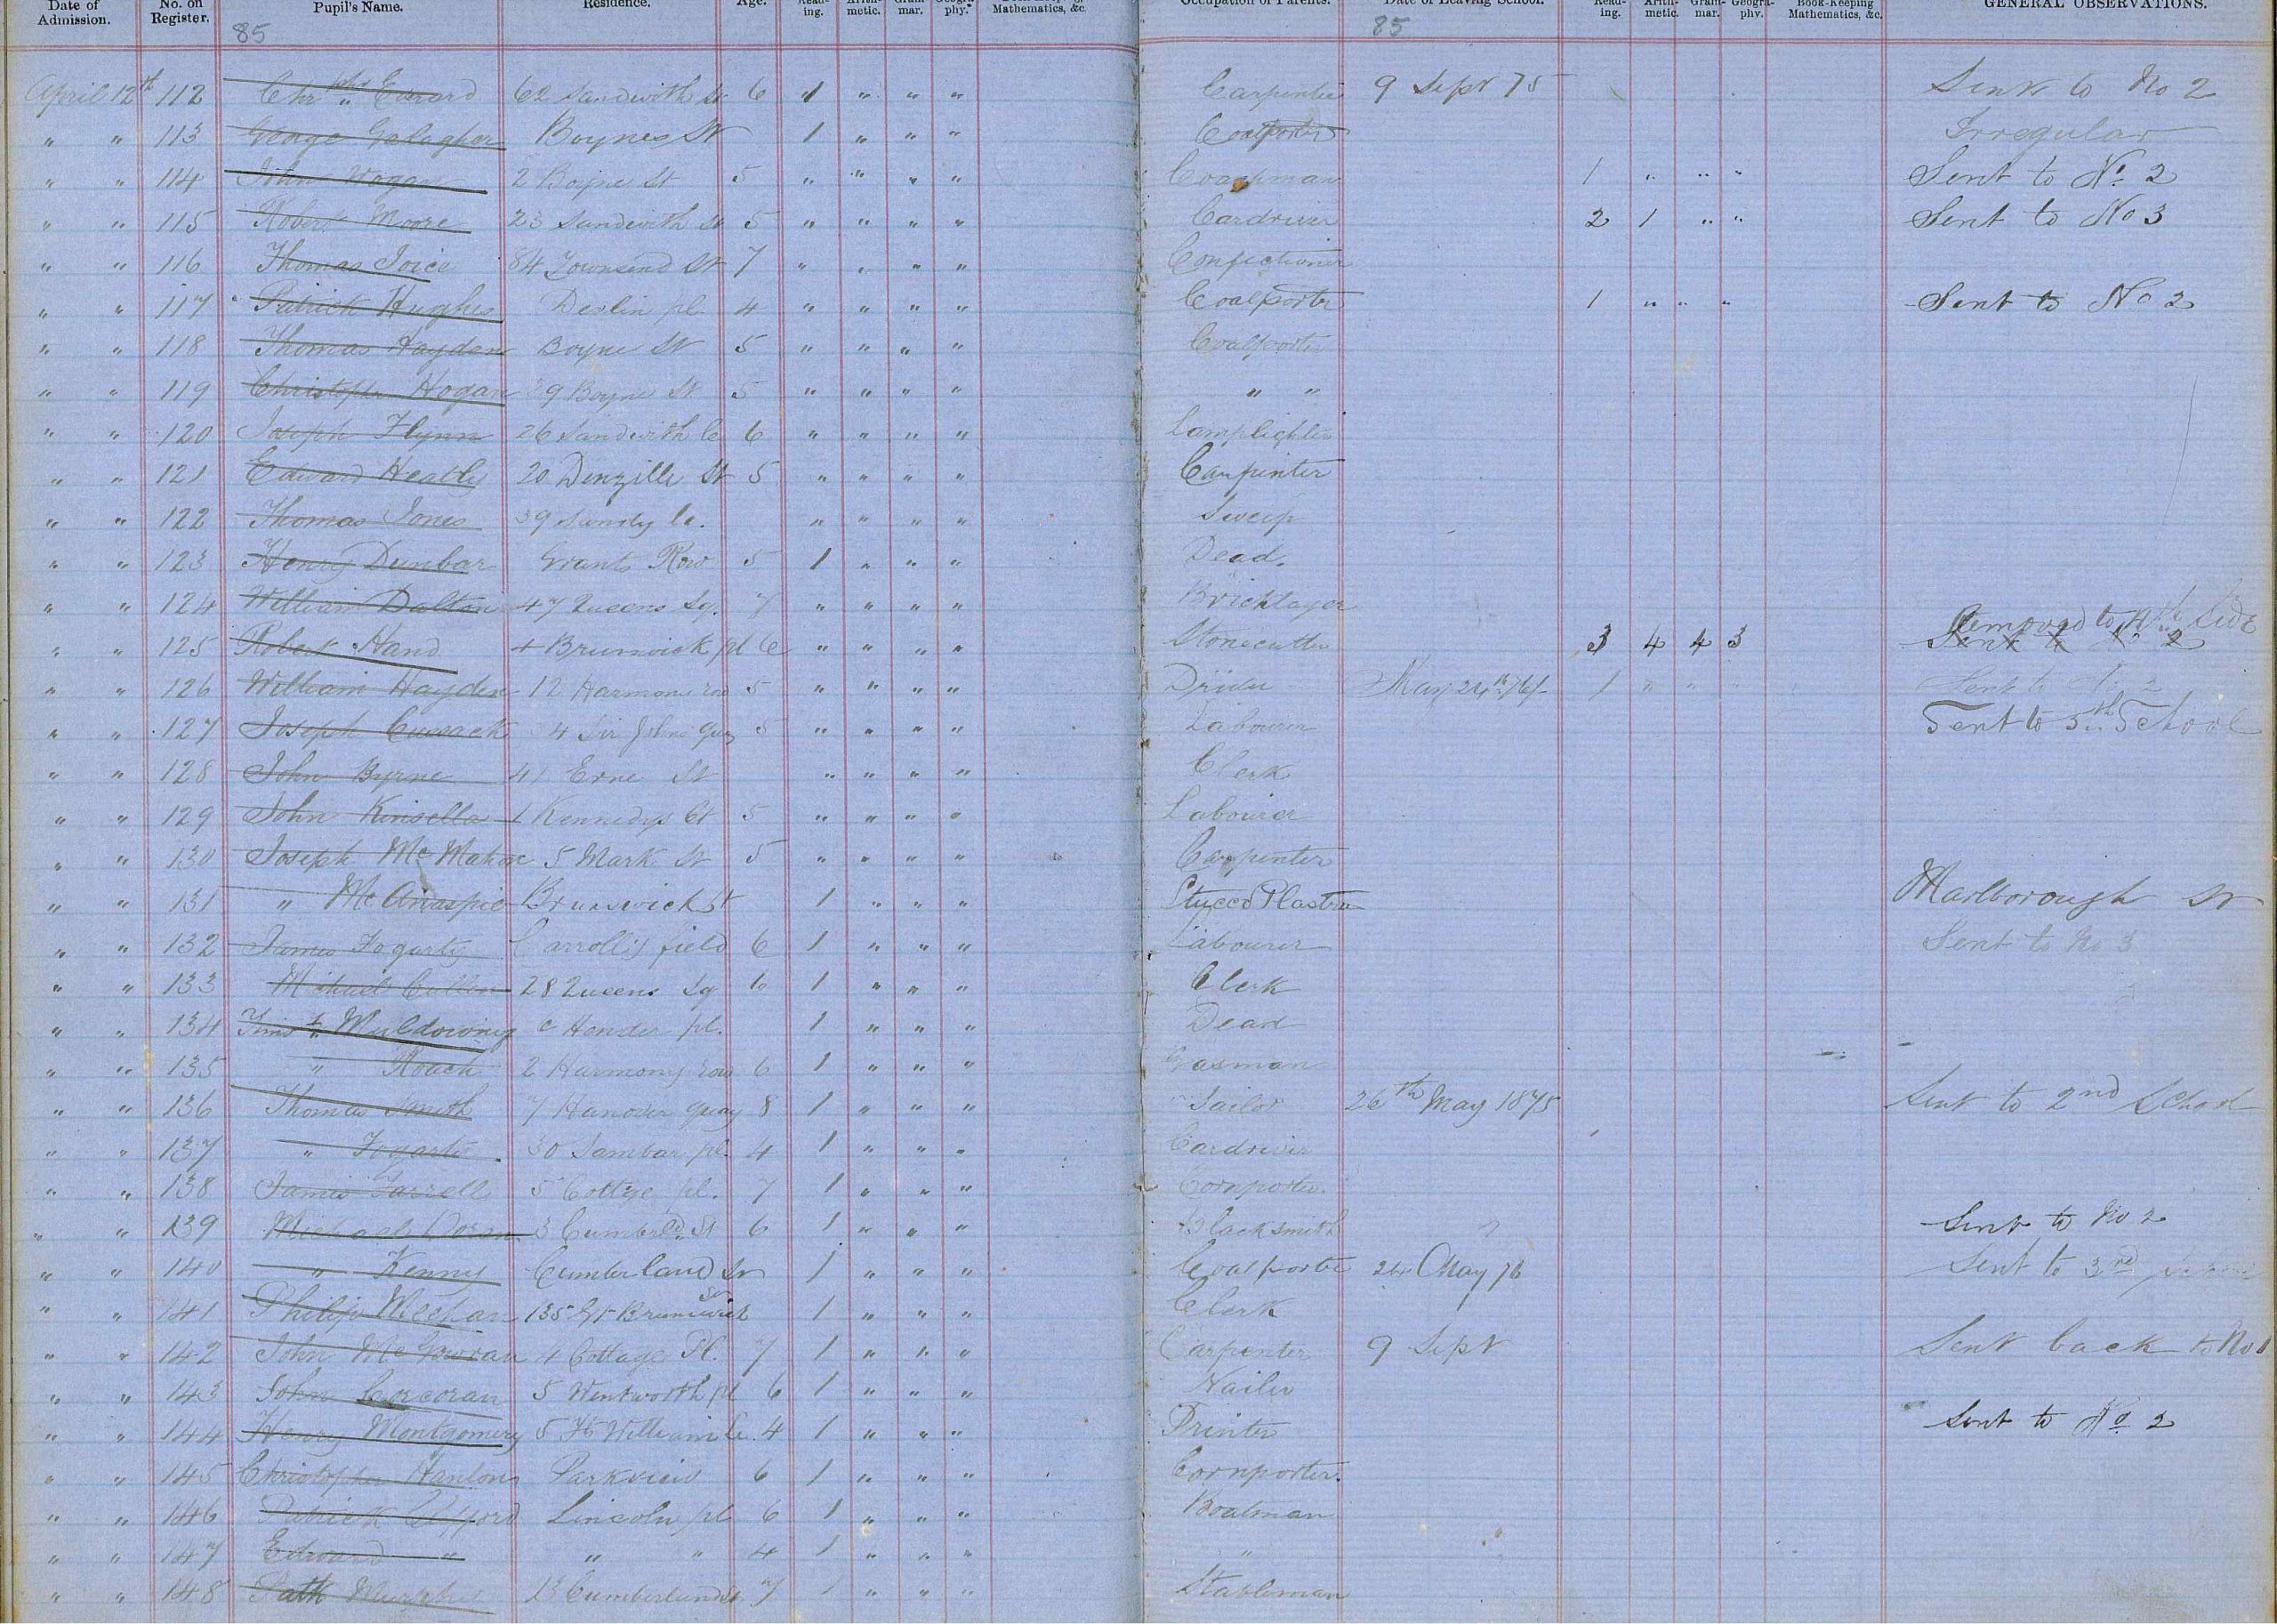 Date of Admission. No. on Register. Pupil's Name. Residence. Age. Read-ing. Arith-metic. Gram-mar. Geogra-phy. Mathematics, &c. Occupation of Parents. Date of Leaving School. Read-ing. Arith-metic. Gram-mar. Geogra-phy. Book-Keeping Mathematics, &c. GENERAL OBSERVATIONS.
85 85
April 12th 112 Chrphr Everard 62 Sandwith St 6 1 " " " Carpenter 9 Sept 75 Sent to No 2
" " 113 George Galagher Boyne St 1 " " " Coalporter Irregular
" " 114 John Hogan 2 Boyne St 5 " " " " Coachman 1 " " " Sent to No 2
" " 115 Robert Moore 23 Sandwith St 5 " " " " Cardriver 2 1 " " Sent to No 3
" " 116 Thomas Joice 84 Townsend St 7 " " " " Confectioner
" " 117 Patrick Hughes Devlin pl. 4 " " " " Coalporter 1 " " " Sent to No 2
" " 118 Thomas Hayden Boyne St 5 " " " " Coalporter
" " 119 Christopher Hogan 29 Boyne St 5 " " " " " "
" " 120 Joseph Flynn 26 Sandwith 6 " " " " Lamplighter
" " 121 Edward Heatly 20 Denzille St 5 " " " " Carpenter
" " 122 Thomas Jones 39 " " " " Sweep
" " 123 Henry Dunbar Grants Row 5 1 " " " Dead.
" " 124 William Dalton 47 Queens Sq. 7 " " " " Bricklayer
" " 125 Robert Hand 4 Brunswick pl 6 " " " " Stonecutter 3 4 4 3 Removed to Side Sent to No 2
" " 126 William Hayden 12 Harmony row 5 " " " " May 24th 76 1 " " " Sent to No 2
" " 127 Joseph Cusack 4 Sir Johns Quay 5 " " " " Labourer Sent to 5th School
" " 128 John Byrne 41 Erne St " " " " Clerk
" " 129 John Kinsella 1 Kennedys Ct 5 " " " " Labourer
" " 130 Joseph McMahon 5 Mark St 5 " " " " Carpenter
" " 131 " McAnaspie Brunswick St 1 " " " Stucco Plastrer Marlborough St
" " 132 James Fogarty Carroll's field 6 1 " " " Labourer Sent to No 3
" " 133 Michael Cullen 28 Queens Sq 6 1 " " " Clerk
" " 134 Timst Muldowny pl. 1 " " " Dead
" " 135 " Roach 2 Harmony row 6 1 " " " Gasman
" " 136 Thomas Smith 7 Hanover Quay 8 1 " " " Tailor 26th May 1875 Sent to 2nd School
" " 137 " Fogarty 30 pl. 4 1 " " " Cardriver
" " 138 James Farrell 5 Cottge pl. 7 1 " " " Cornporter.
" " 139 Michael Doran 3 Cumberld St 6 1 " " " Blacksmith Sent to No 2
" " 140 " Kenny Cumberland St 1 " " " Coalporter 24 May 76 Sent to 3rd
" " 141 Philip Meehan 135 Gt Brunswick St 1 " " " Clerk
" " 142 John McGowran 4 Cottage Pl. 7 1 " " " Carpenter 9 Sept Sent back to No 1
" " 143 John Corcoran 5 Wentworth pl 6 1 " " " Nailer
" " 144 Henry Montgomery 5 Ft William 4 1 " " " Printer Sent to No 2
" " 145 Christopher Hanlon Parkview 6 1 " " " Cornporter.
" " 146 Patrick Lincoln pl 6 1 " " " Boatman
" " 147 Edward " " " 4 1 " " " "
" " 148 Patk Murphy 13 Cumberland St 7 1 " " " Stableman